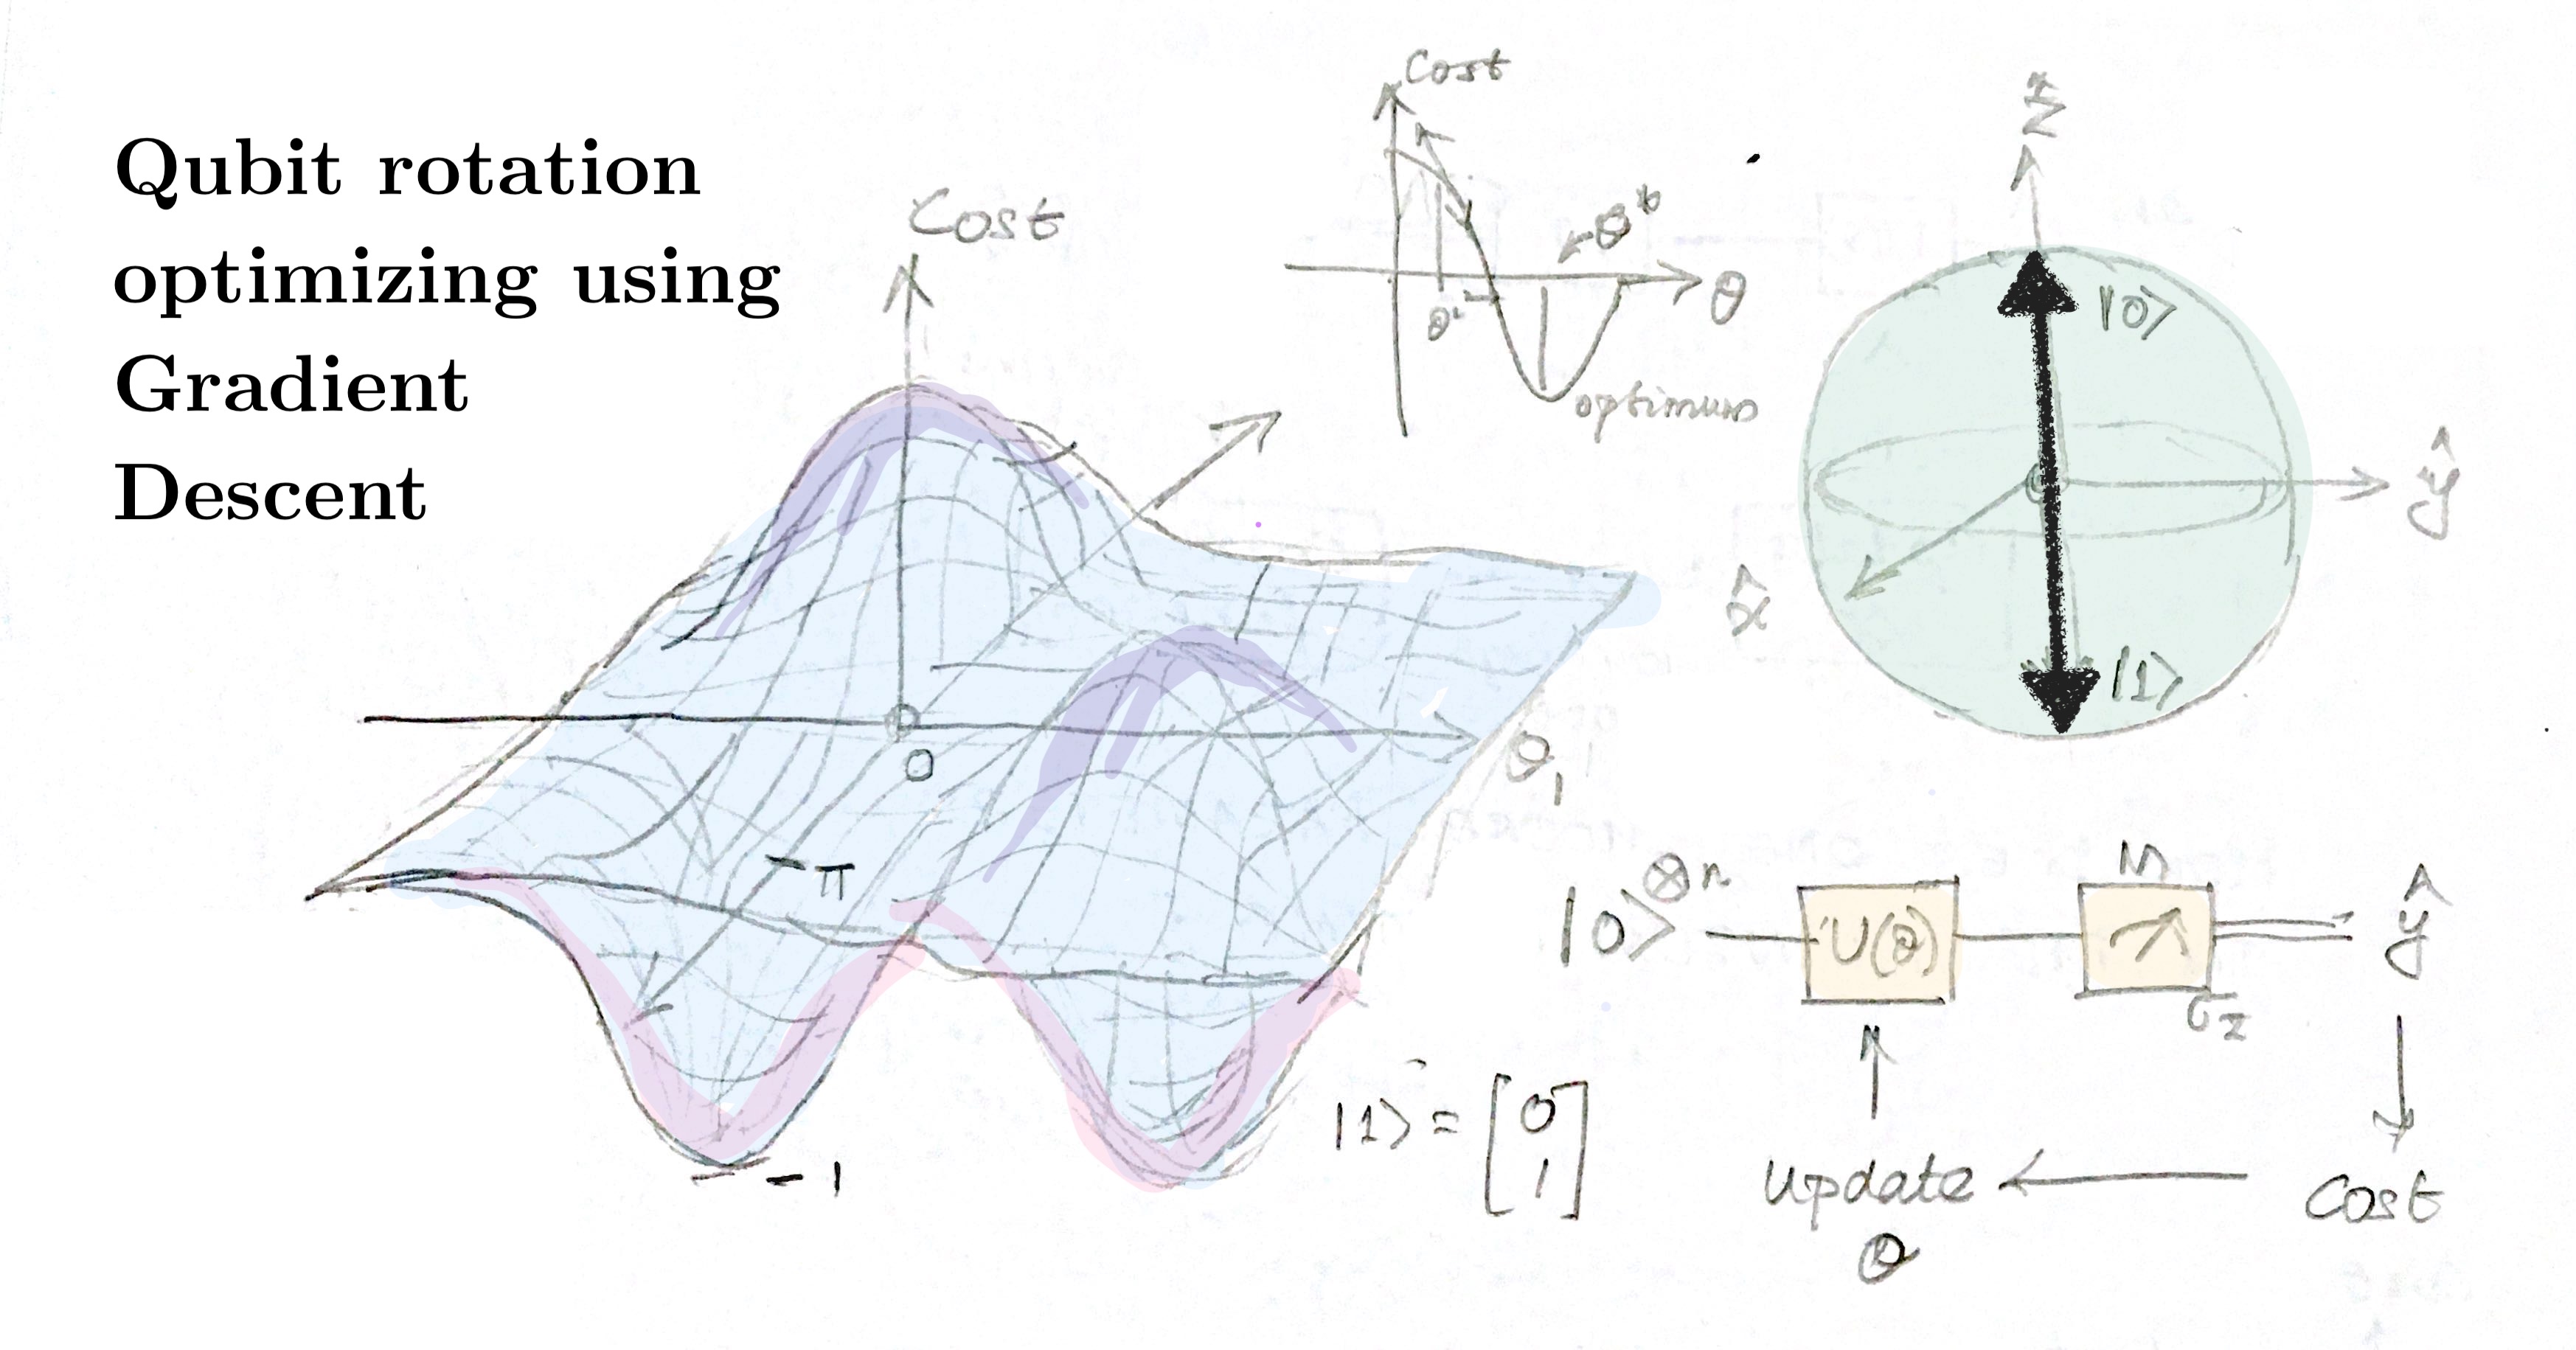 Qubit rotation
optimizing using
Gradient
Descent
Cost
0
θ₁
-π
- 1
Cost
θ
optimum
ẑ
|0⟩
ŷ
x̂
|1⟩
|0⟩⊗n
U(θ)
M
σz
ŷ
Cost
update
θ
|1⟩ = [0
1]